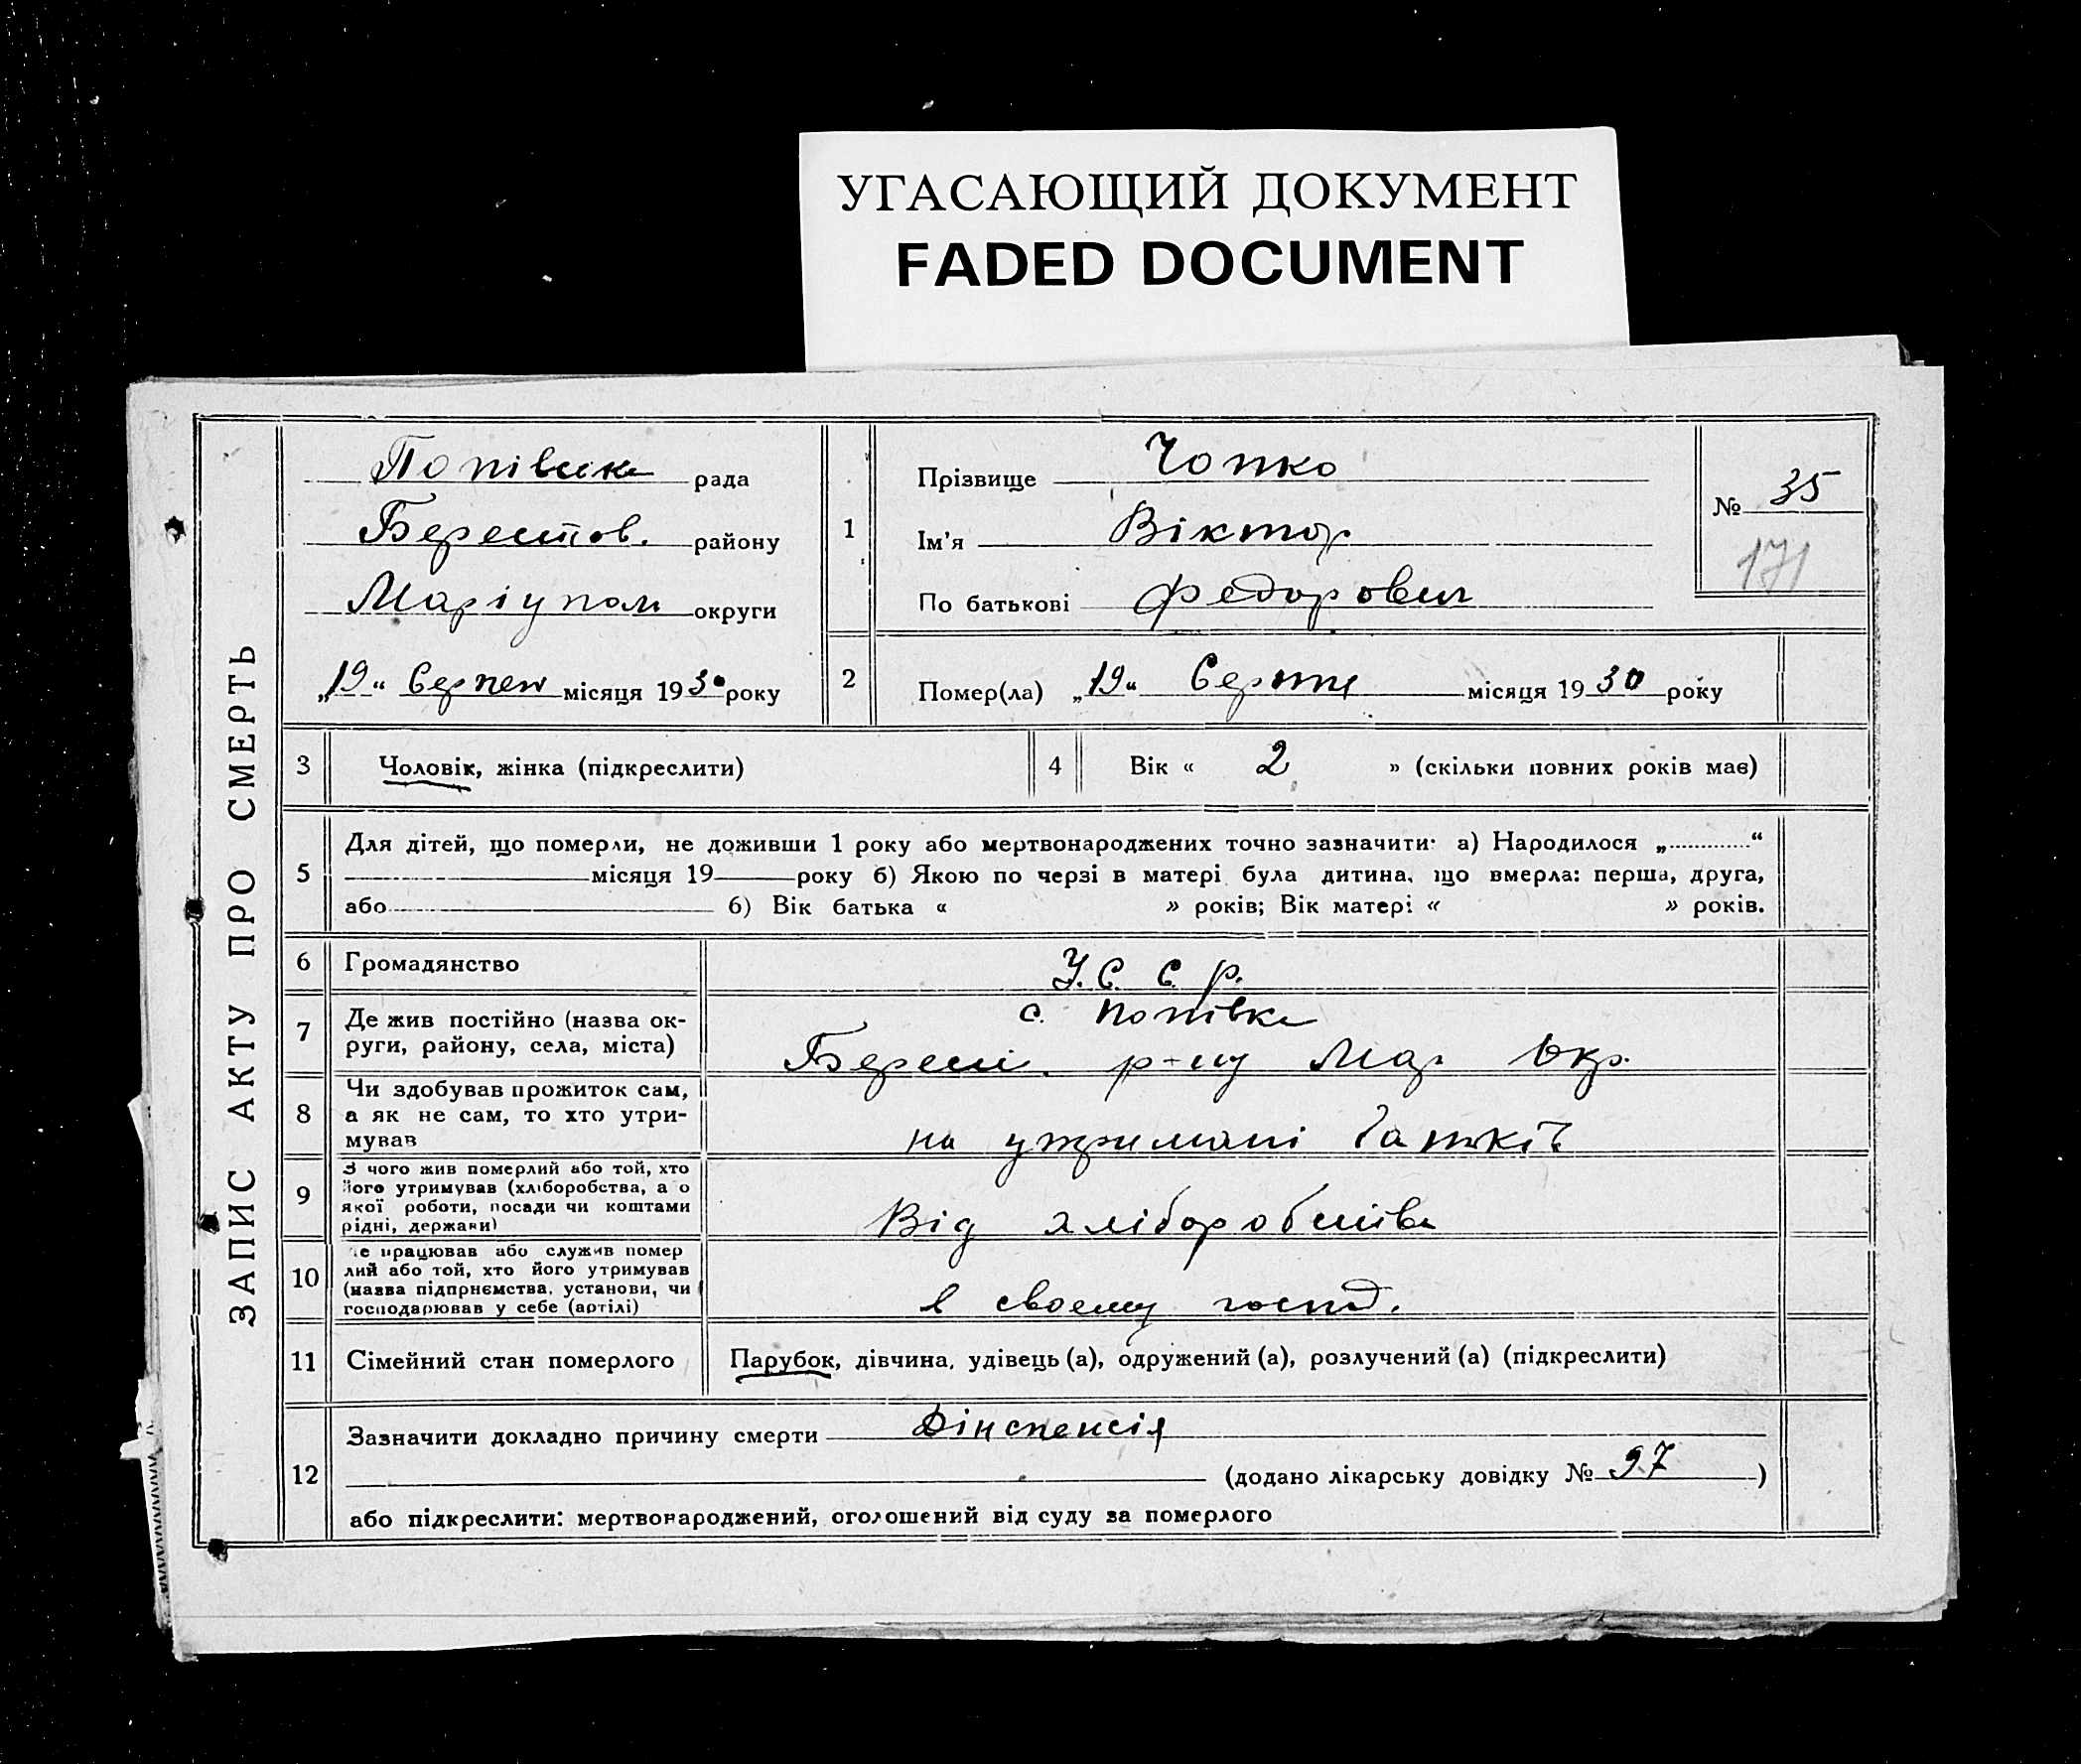 УГАСАЮЩИЙ ДОКУМЕНТ
FADED DOCUMENT
ЗАПИС АКТУ ПРО СМЕРТЬ
Попівська рада
Берестов. району
Маріупол округи
„19“ Серпня місяця 1930 року
1
Прізвище Чопко
Ім'я Віктор
По батькові Федорович
№ 35
171
2
Помер(ла) „19“ Серпня місяця 1930 року
3
Чоловік, жінка (підкреслити)
4
Вік « 2 » (скільки повних років має)
5
Для дітей, що померли, не доживши 1 року або мертвонароджених точно зазначити: а) Народилося „............“
місяця 19 року б) Якою по черзі в матері була дитина, що вмерла: перша, друга,
або 6) Вік батька « » років; Вік матері « » років.
6
Громадянство
У.С.С.р.
7
Де жив постійно (назва ок-
руги, району, села, міста)
с. Попівка
Берест. р-ну Мар. Окр.
8
Чи здобував прожиток сам,
а як не сам, то хто утри-
мував
на утримані батьків
9
З чого жив померлий або той, хто
його утримував (хліборобства, а о
якої роботи, посади чи коштами
рідні, держави)
Від хліборобства
10
Де працював або служив помер
лий або той, хто його утримував
(назва підпрнємства, установи, чи
господарював у себе (артілі)
в своему госпд.
11
Сімейний стан померлого
Парубок, дівчина, удівець (а), одружений (а), розлучений (а) (підкреслити)
12
Зазначити докладно причину смерти Дінспенсія
(додано лікарську довідку № 97 )
або підкреслити: мертвонароджений, оголошений від суду за померлого